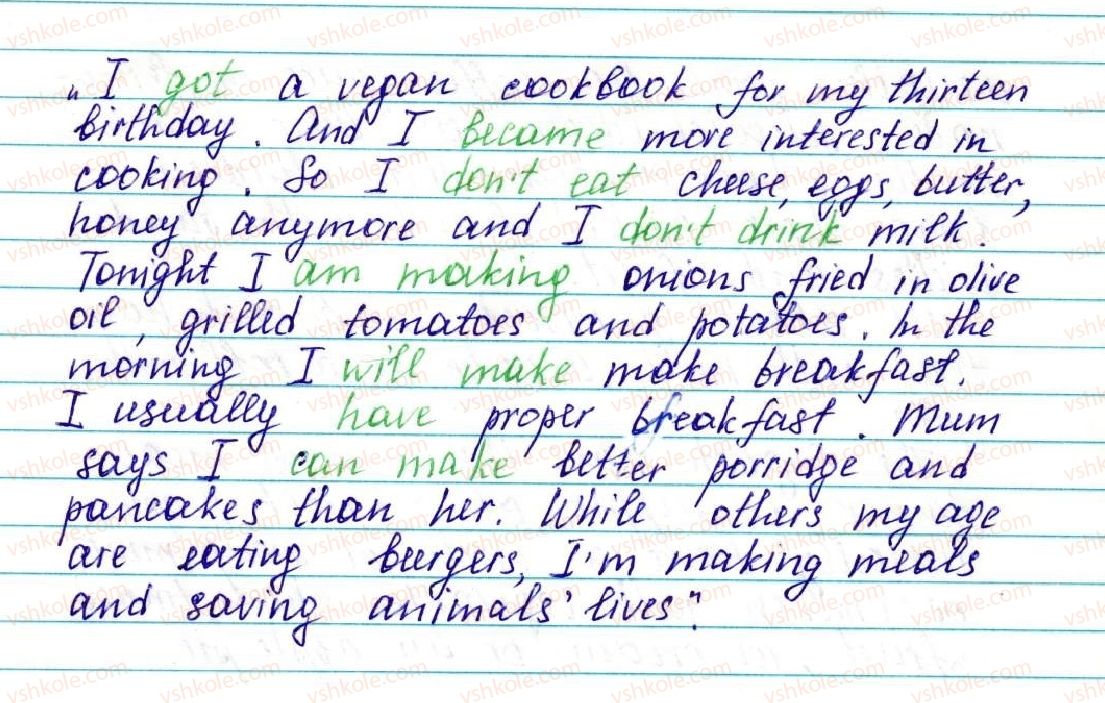 „I got a vegan cookbook for my thirteen
birthday. And I became more interested in
cooking. So I don't eat cheese, eggs, butter,
honey anymore and I don't drink milk.
Tonight I am making onions fried in olive
oil, grilled tomatoes and potatoes. In the
morning I will make make breakfast.
I usually have proper breakfast. Mum
says I can make better porridge and
pancakes than her. While others my age
are eating burgers, I'm making meals
and saving animals' lives".